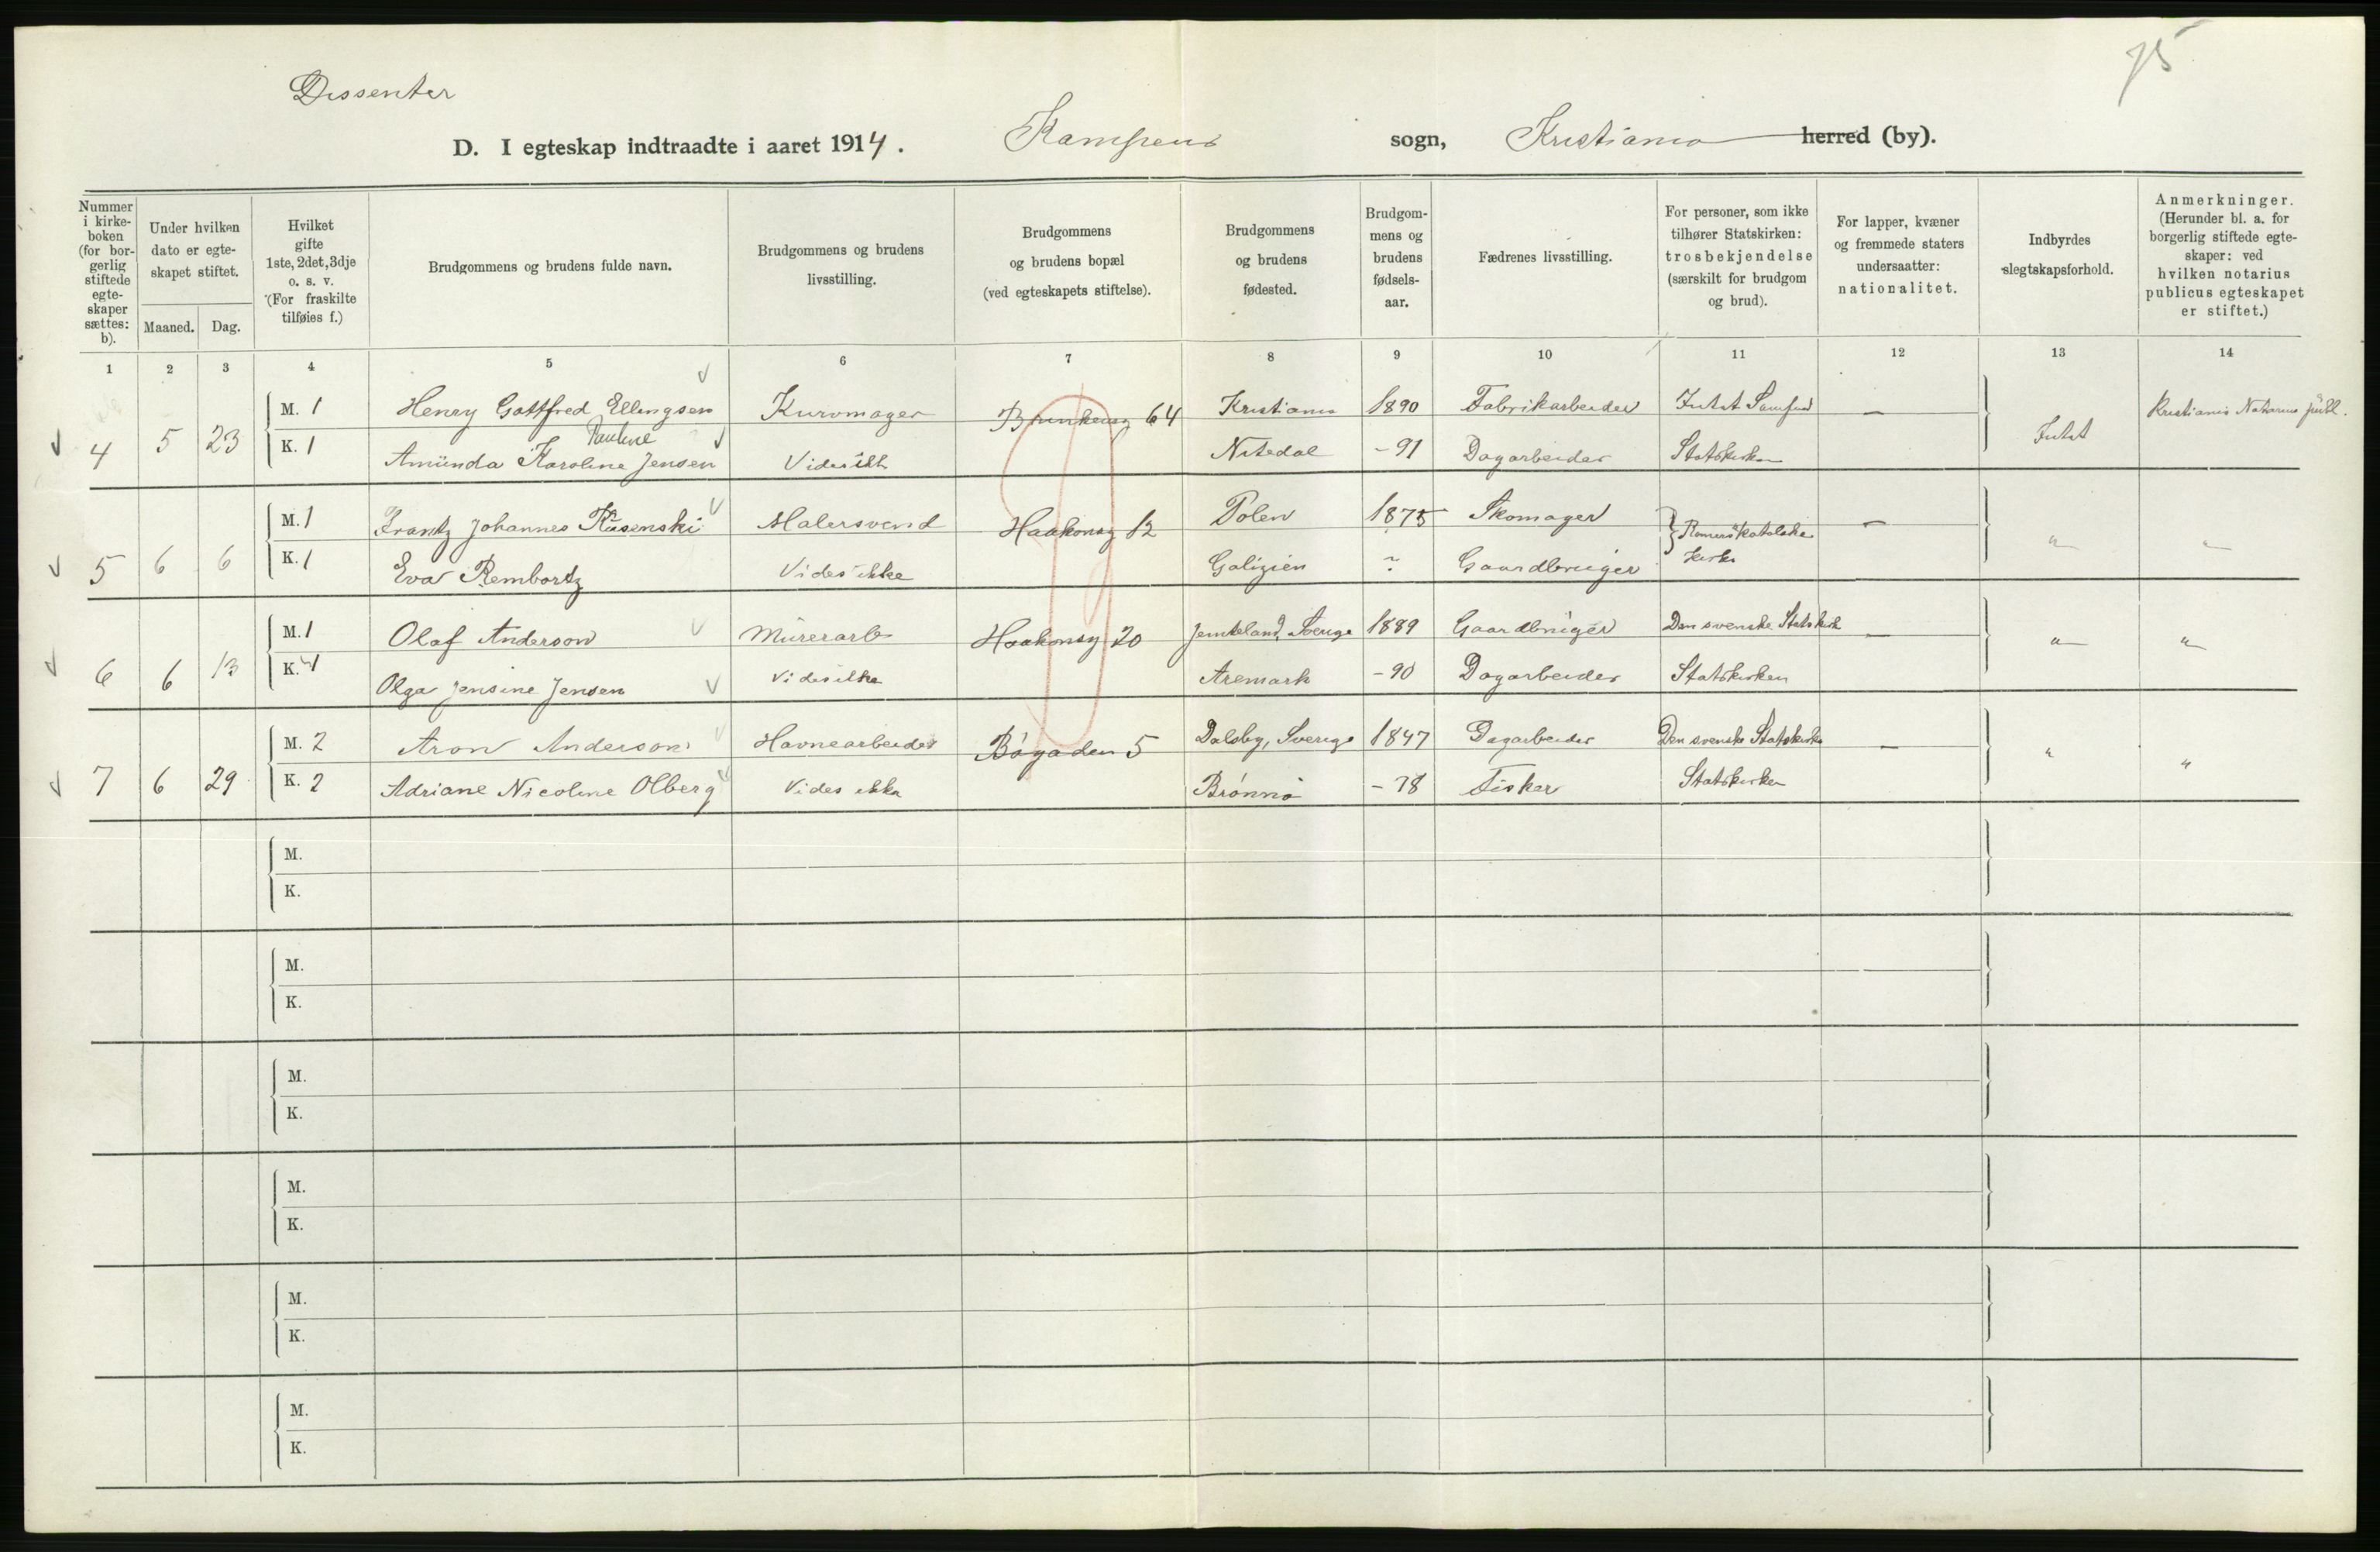 75
Dissenter
D. I egteskap indtraadte i aaret 1914. Kampens sogn, Kristiania herred (by).
Nummer i kirke-boken (for bor-gerlig stiftede egte-skaper sættes: b).
Under hvilken dato er egte-skapet stiftet.
Maaned. Dag.
Hvilket gifte 1ste, 2det, 3dje o. s. v. (For fraskilte tilføies f.)
Brudgommens og brudens fulde navn.
Brudgommens og brudens livsstilling.
Brudgommens og brudens bopæl (ved egteskapets stiftelse).
Brudgommens og brudens fødested.
Brudgom-mens og brudens fødsels-aar.
Fædrenes livsstilling.
For personer, som ikke tilhører Statskirken: trosbekjendelse (særskilt for brudgom og brud).
For lapper, kvæner og fremmede staters undersaatter: nationalitet.
Indbyrdes slegtskapsforhold.
Anmerkninger. (Herunder bl. a. for borgerlig stiftede egte-skaper: ved hvilken notarius publicus egteskapet er stiftet.)
1 2 3 4 5 6 7 8 9 10 11 12 13 14
4 5 23 M. 1 Henry Gottfred Ellingsen Kurvmager 64 Kristiania 1890 Fabrikarbeider Intet Samfund — Intet Kristiania Notarius publ.
Pauline
K. 1 Amünda Karoline Jensen Vides ikk Nitedal - 91 Dagarbeider Statskirken
5 6 6 M. 1 Frantz Johannes Kusenski Malersvend Haakonsg 12 Polen 1875 Skomager Romersk katolske Kirke — " "
K. 1 Eva Rembortz Vides ikke Galizien ? Gaardbruger
6 6 13 M. 1 Olaf Anderson Murerarb Haakonsg 20 Jemteland, Sverige 1889 Gaardbruger Den svenske Statskirk — " "
K. 1 Olga Jensine Jensen Vides ikke Aremark - 90 Dagarbeider Statskirken
7 6 29 M. 2 Aron Anderson Havnearbeider Bøgaden 5 Dalsby, Sverige 1847 Dagarbeider Den svenske Statskirke — " "
K. 2 Adriane Nicoline Olberg Vides ikke Brønnø - 78 Fisker Statskirken
M.
K.
M.
K.
M.
K.
M.
K.
M.
K.
M.
K.